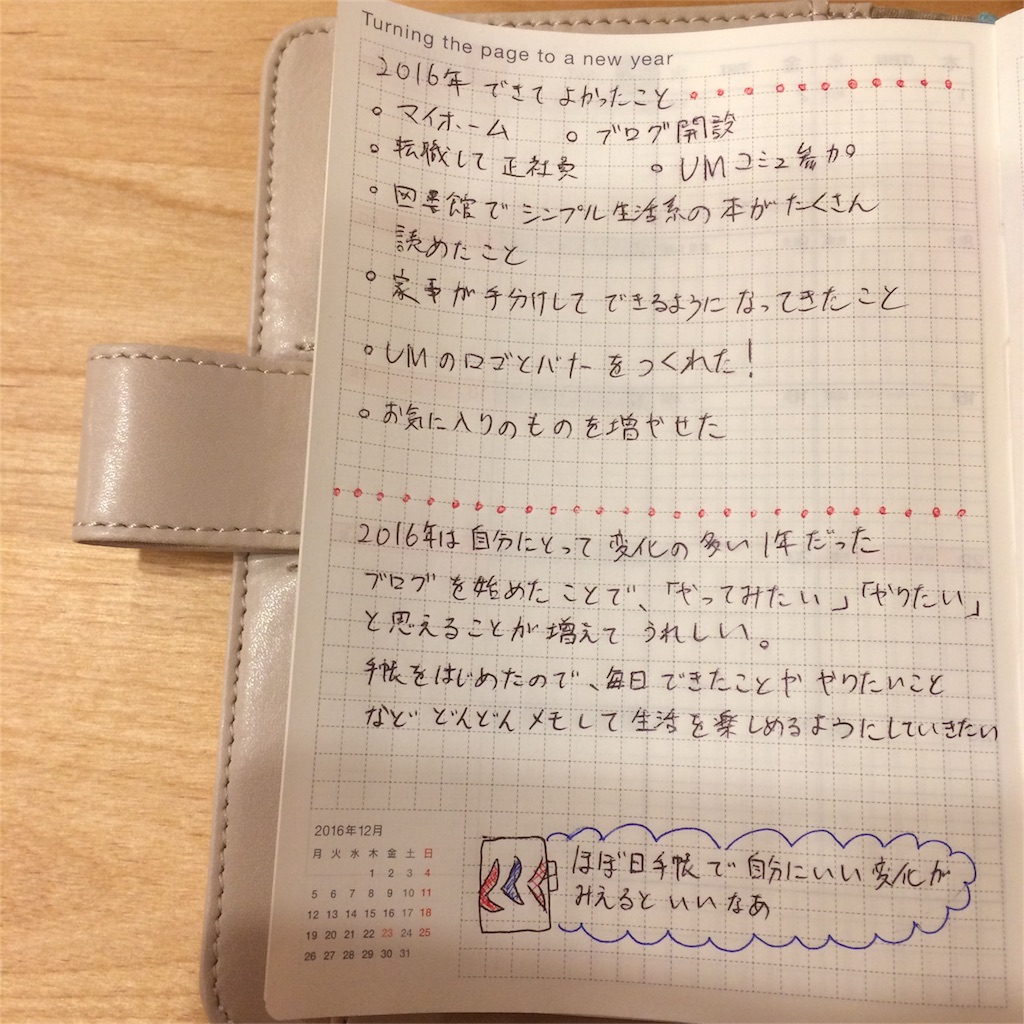 Turning the page to a new year
2016年 できて よかったこと
○ マイホーム ○ ブログ開設
○ 転職して 正社員 ○ UMコミュ参加
○ 図書館で シンプル生活系の本がたくさん
読めたこと
○ 家事が手分けして できるようになってきたこと
○ UMのロゴとバナーをつくれた!
○ お気に入りのものを増やせた
2016年は 自分にとって 変化の多い1年だった
ブログを始めたことで、「やってみたい」「やりたい」
と思えることが増えて うれしい。
手帳をはじめたので、毎日できたことや やりたいこと
など どんどん メモして 生活を楽しめるようにしていきたい
2016年12月
月 火 水 木 金 土 日
1 2 3 4
5 6 7 8 9 10 11
12 13 14 15 16 17 18
19 20 21 22 23 24 25
26 27 28 29 30 31
ほぼ日手帳で 自分にいい 変化が
みえると いいなあ